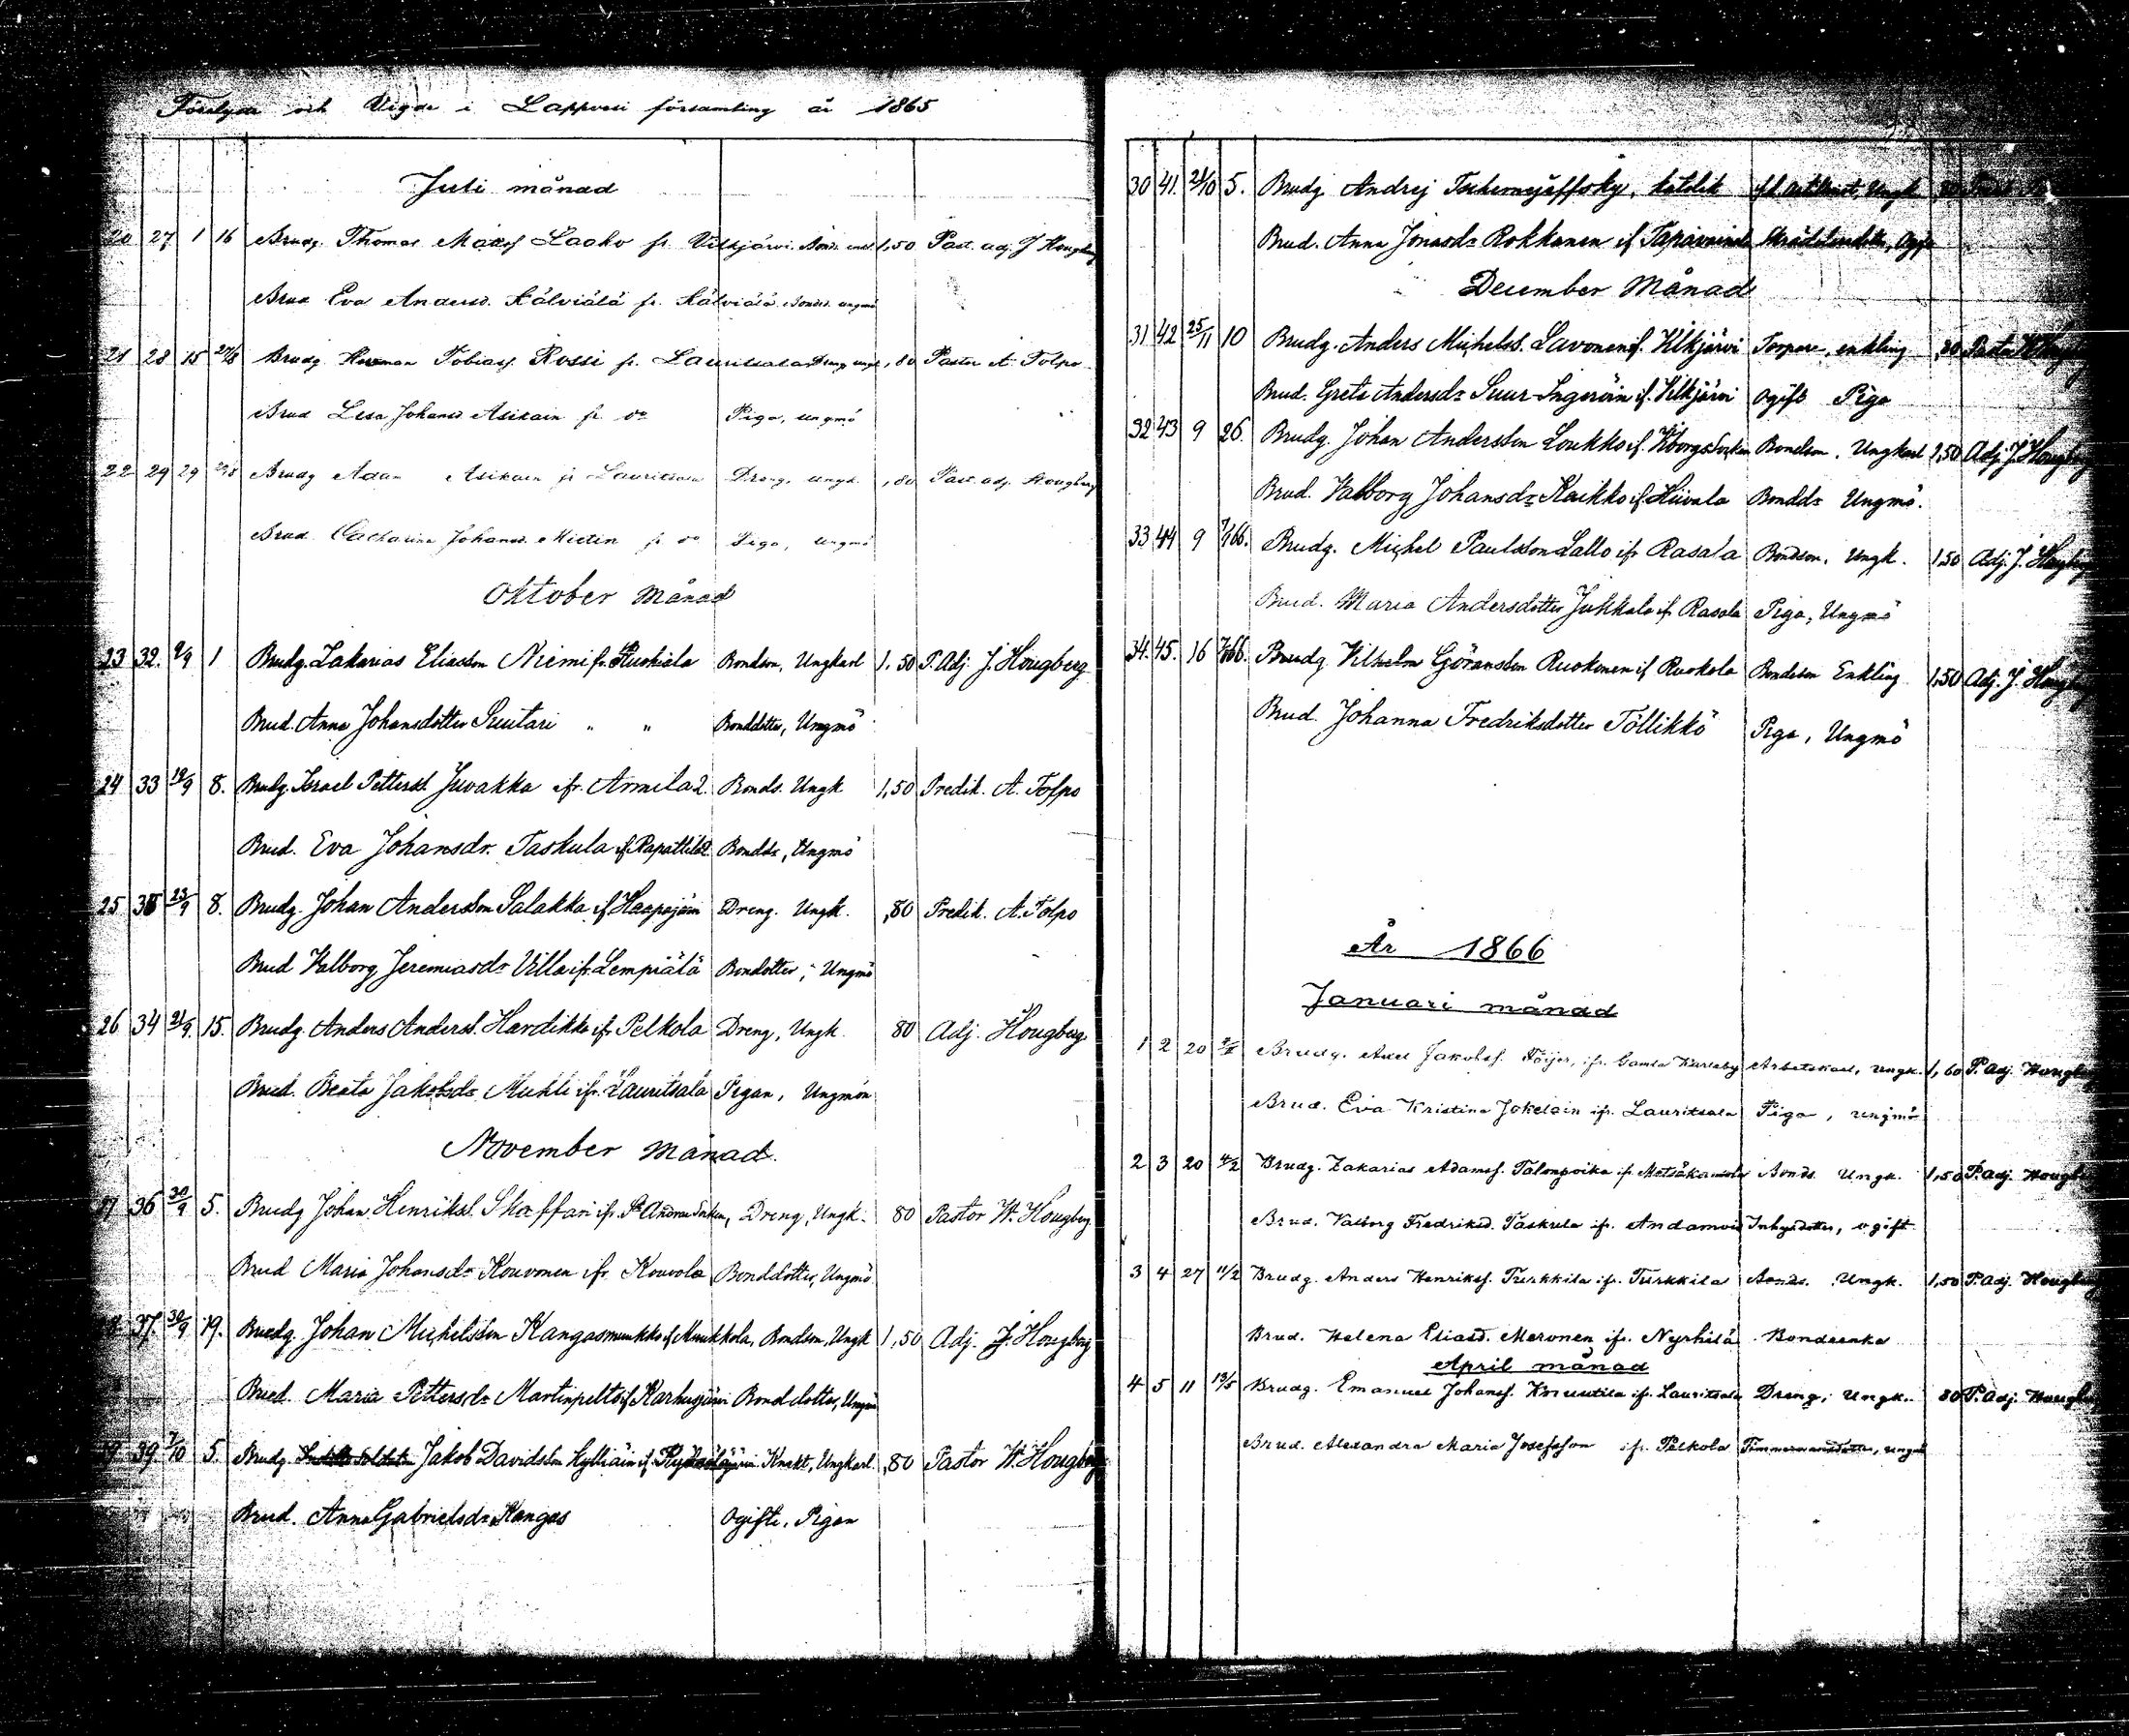 och Vigde i Lappvesi församling år 1865
Juli månad
20 27 1 16 Brudg. Thomas Laako fr. Vilkjärvi 1,50 Past. adj. J Hougberg
Brud Eva Andersd. Kälviälä fr. Kälviälä Bondd. ungmö
21 28 15 27/8 Brudg Herman Tobiasf. Rossi fr. Lauritsala Dreng ungk ,80 Pastor A. Tolpo
Brud Lisa Johansd Asikain fr do Piga, ungmö
22 29 29 Brudg Adam Asikain fr Lauritsala Dreng, ungk. ,80 Past. adj. Hougberg
Brud Catharina Johansd. Mietin fr do Piga, ungmö
Oktober Månad
23 32. 2/9 1 Brudg. Zakarias Eliasson Niemi fr. Bondson, Ungkarl 1,50 P. Adj J. Hougberg
Brud. Anna Johansdotter Suutari " " Bonddotter, Ungmö
24 33 12/9 8. Brudg. Israel Petterss. Juvakka ifr. Armila 2. Bonds. Ungk 1,50 Predik. A. Tolpo
Brud. Eva Johansdr. Taskula if. Rapattila Bondds, Ungmö
25 35 23/9 8. Brudg. Johan Andersson Salakka if Haapajärvi Dreng. Ungk. ,80 Predik. A. Tolpo
Brud Valborg Jeremiasdr Villa ifr. Lempiälä Bondotter, Ungmö
26 34 21/9. 15. Brudg. Anders Anderss. Hardikka ifr. Pelkola Dreng, Ungk. 80 Adj. Hougberg
Brud. Beata Jakobsdr Muhli ifr. Lauritsala Pigan, Ungmön
November Månad.
36 30/9 5. Brudg Johan Henrikss. Skaffari ifr. St Andræ Socken, Dreng, Ungk. 80 Pastor W. Hougberg
Brud Maria Johansdr Kouvonen ifr. Kouvola Bonddotter, Ungmö
37. 30/9 19. Brudg. Johan Michelsson Kangasmuukko if Muukkola, Bondson, Ungk 1,50 Adj. J. Hougberg
Brud. Maria Pettersdr Martinpelto if Karhusjärvi Bonddotter, Ungmö
39. 7/10 5. Brudg. Jakob Davidsson Hylliäin if. Knekt, Ungkarl. ,80 Pastor W. Hougberg
Brud. Anna Gabrielsdr Kangas Ogifte, Pigan
30 41. 21/10 5. Brudg Andrej Tschernejeffsky, katolik
Brud. Anna Jonasdr Rokkanen if Tapavainola
December Månad
31 42 25/11 10 Brudg. Anders Michelss. Savonen if. Vilkjärvi Torpare, enkling ,80 Pastor
Brud. Greta Andersdr Suur-Ingeröin if. Vilkjärvi Ogift Piga
32 43 9 26. Brudg. Johan Andersson Loukko if. Viborgs Socken Bondson, Ungkarl 1,50 Adj. J. Hougberg
Brud. Valborg Johansdr Kaikko if. Hiivala Bondds Ungmö.
33 44 9 7/1 66. Brudg. Michel Paulsson Lallo ifr Rasala Bondson, Ungk. 1,50 Adj. J. Hougberg
Brud. Maria Andersdotter Jukkala if. Rasala Piga, Ungmö
34. 45. 16 Brudg. Vilhelm Göransson Ruokonen if Ruokola Bondson Enkling 1,50 Adj. J. Hougberg
Brud. Johanna Fredriksdotter Töllikkö Piga, Ungmö
År 1866
Januari månad
1 2 20 Brudg. Axel Jakobsf. Höijer, ifr. Gamla Karleby Arbetskarl, ungk. 1,60 P. adj. Hougberg
Brud. Eva Kristina Jokelain ifr. Lauritsala Piga, ungmö
2 3 20 4/2 Brudg. Zakarias Adamsf. Talonpoika ifr. Bonds. Ungk. 1,50 P. adj. Hougberg
Brud. Valborg Fredriksd. Taskula ifr. Inhysdotter, ogift
3 4 27 11/2 Brudg. Anders Henriksf. Turkkila ifr. Turkkila Bonds. Ungk. 1,50 P. adj. Hougberg
Brud. Helena Eliasd. Meronen ifr. Nyrhilä Bondeenka
April månad
4 5 11 13/5 Brudg. Emanuel Johansf. Knuutila ifr. Lauritsala Dreng, Ungk. 80 P. adj. Hougberg
Brud. Alexandra Maria Josefsson ifr. Pelkola Timmermansdotter, ungmö